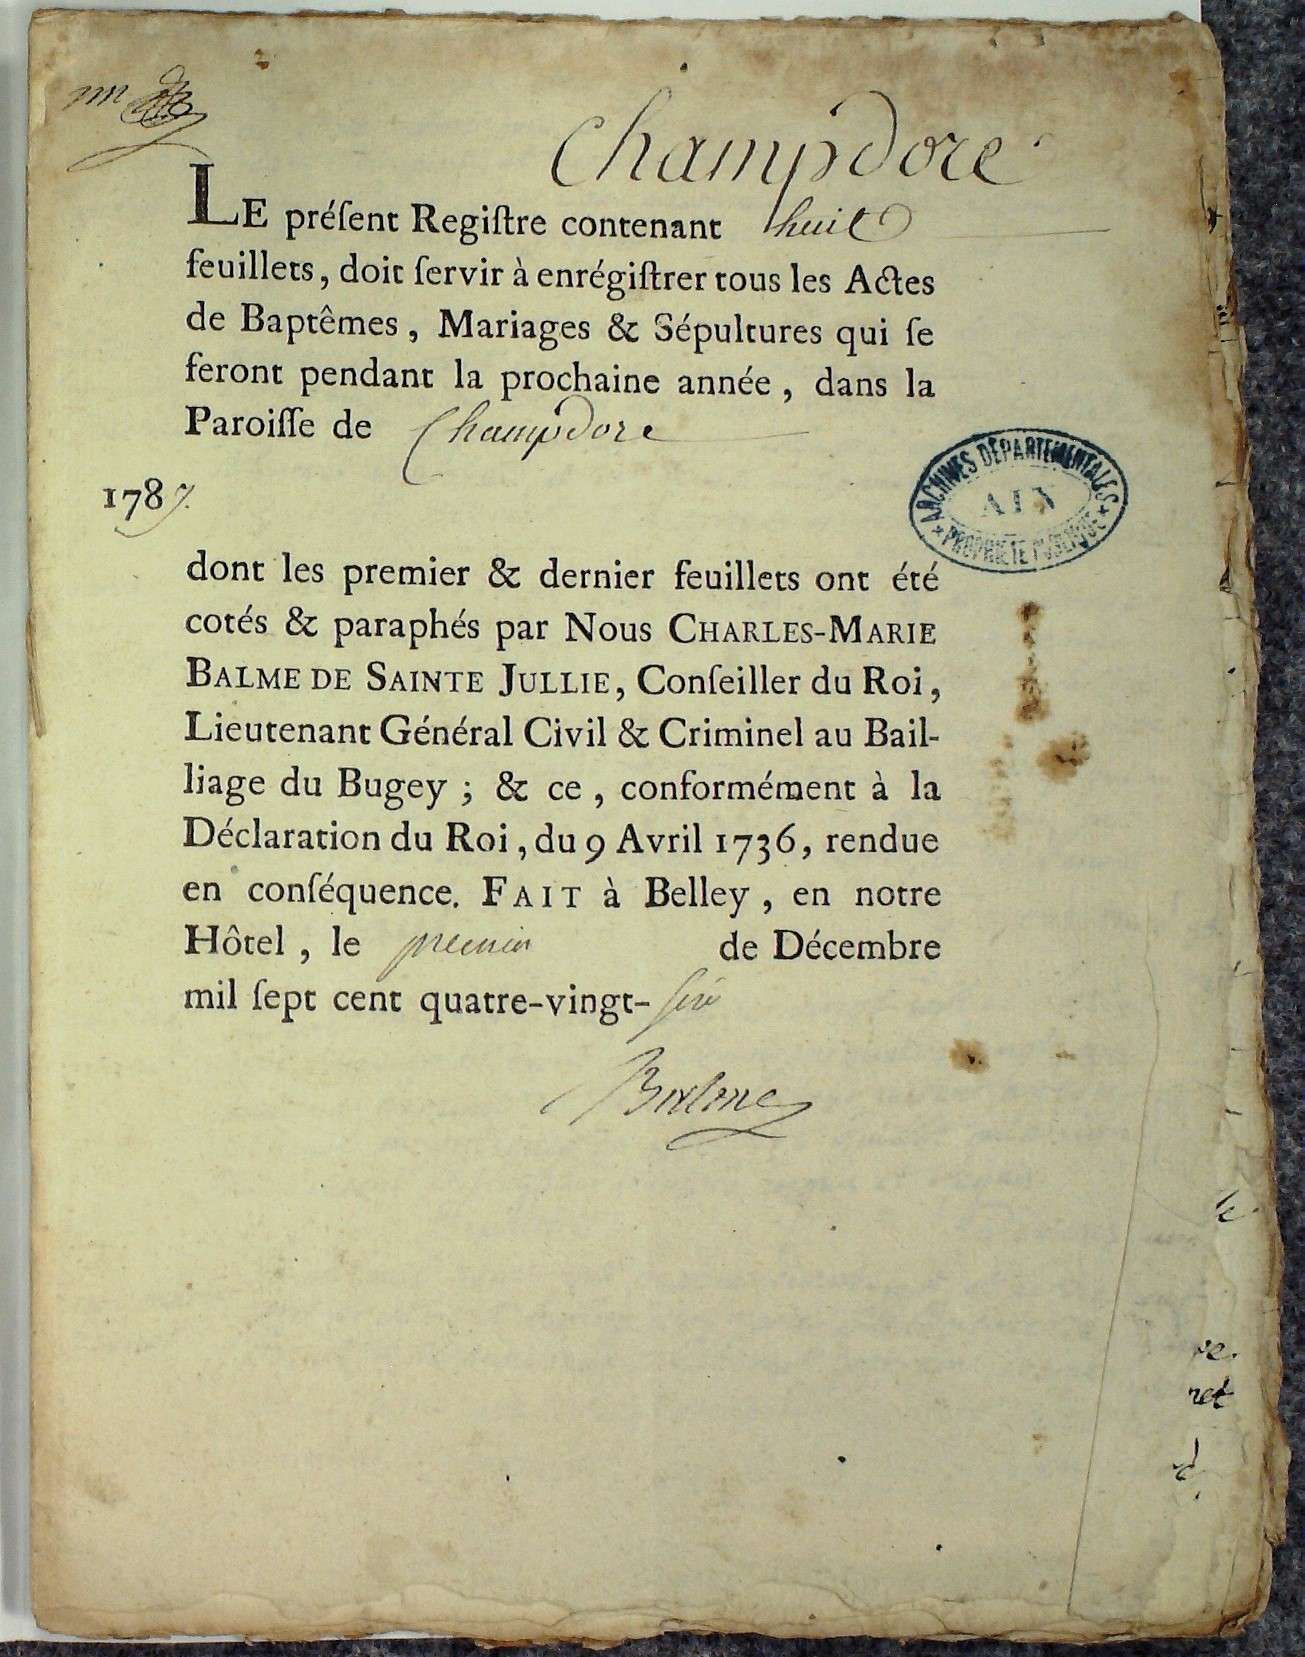 Champdore
LE préſent Regiſtre contenant huit
feuillets, doit ſervir à enrégiſtrer tous les Actes
de Baptêmes, Mariages & Sépultures qui ſe
feront pendant la prochaine année, dans la
Paroiſſe de Champdore
1787.
ARCHIVES DÉPARTEMENTALES
AIN
* PROPRIÉTÉ PUBLIQUE *
dont les premier & dernier feuillets ont été
cotés & paraphés par Nous CHARLES-MARIE
BALME DE SAINTE JULLIE, Conſeiller du Roi,
Lieutenant Général Civil & Criminel au Bail-
liage du Bugey ; & ce, conformément à la
Déclaration du Roi, du 9 Avril 1736, rendue
en conſéquence. FAIT à Belley, en notre
Hôtel, le premier de Décembre
mil ſept cent quatre-vingt-six
Balme
le
re.
ret